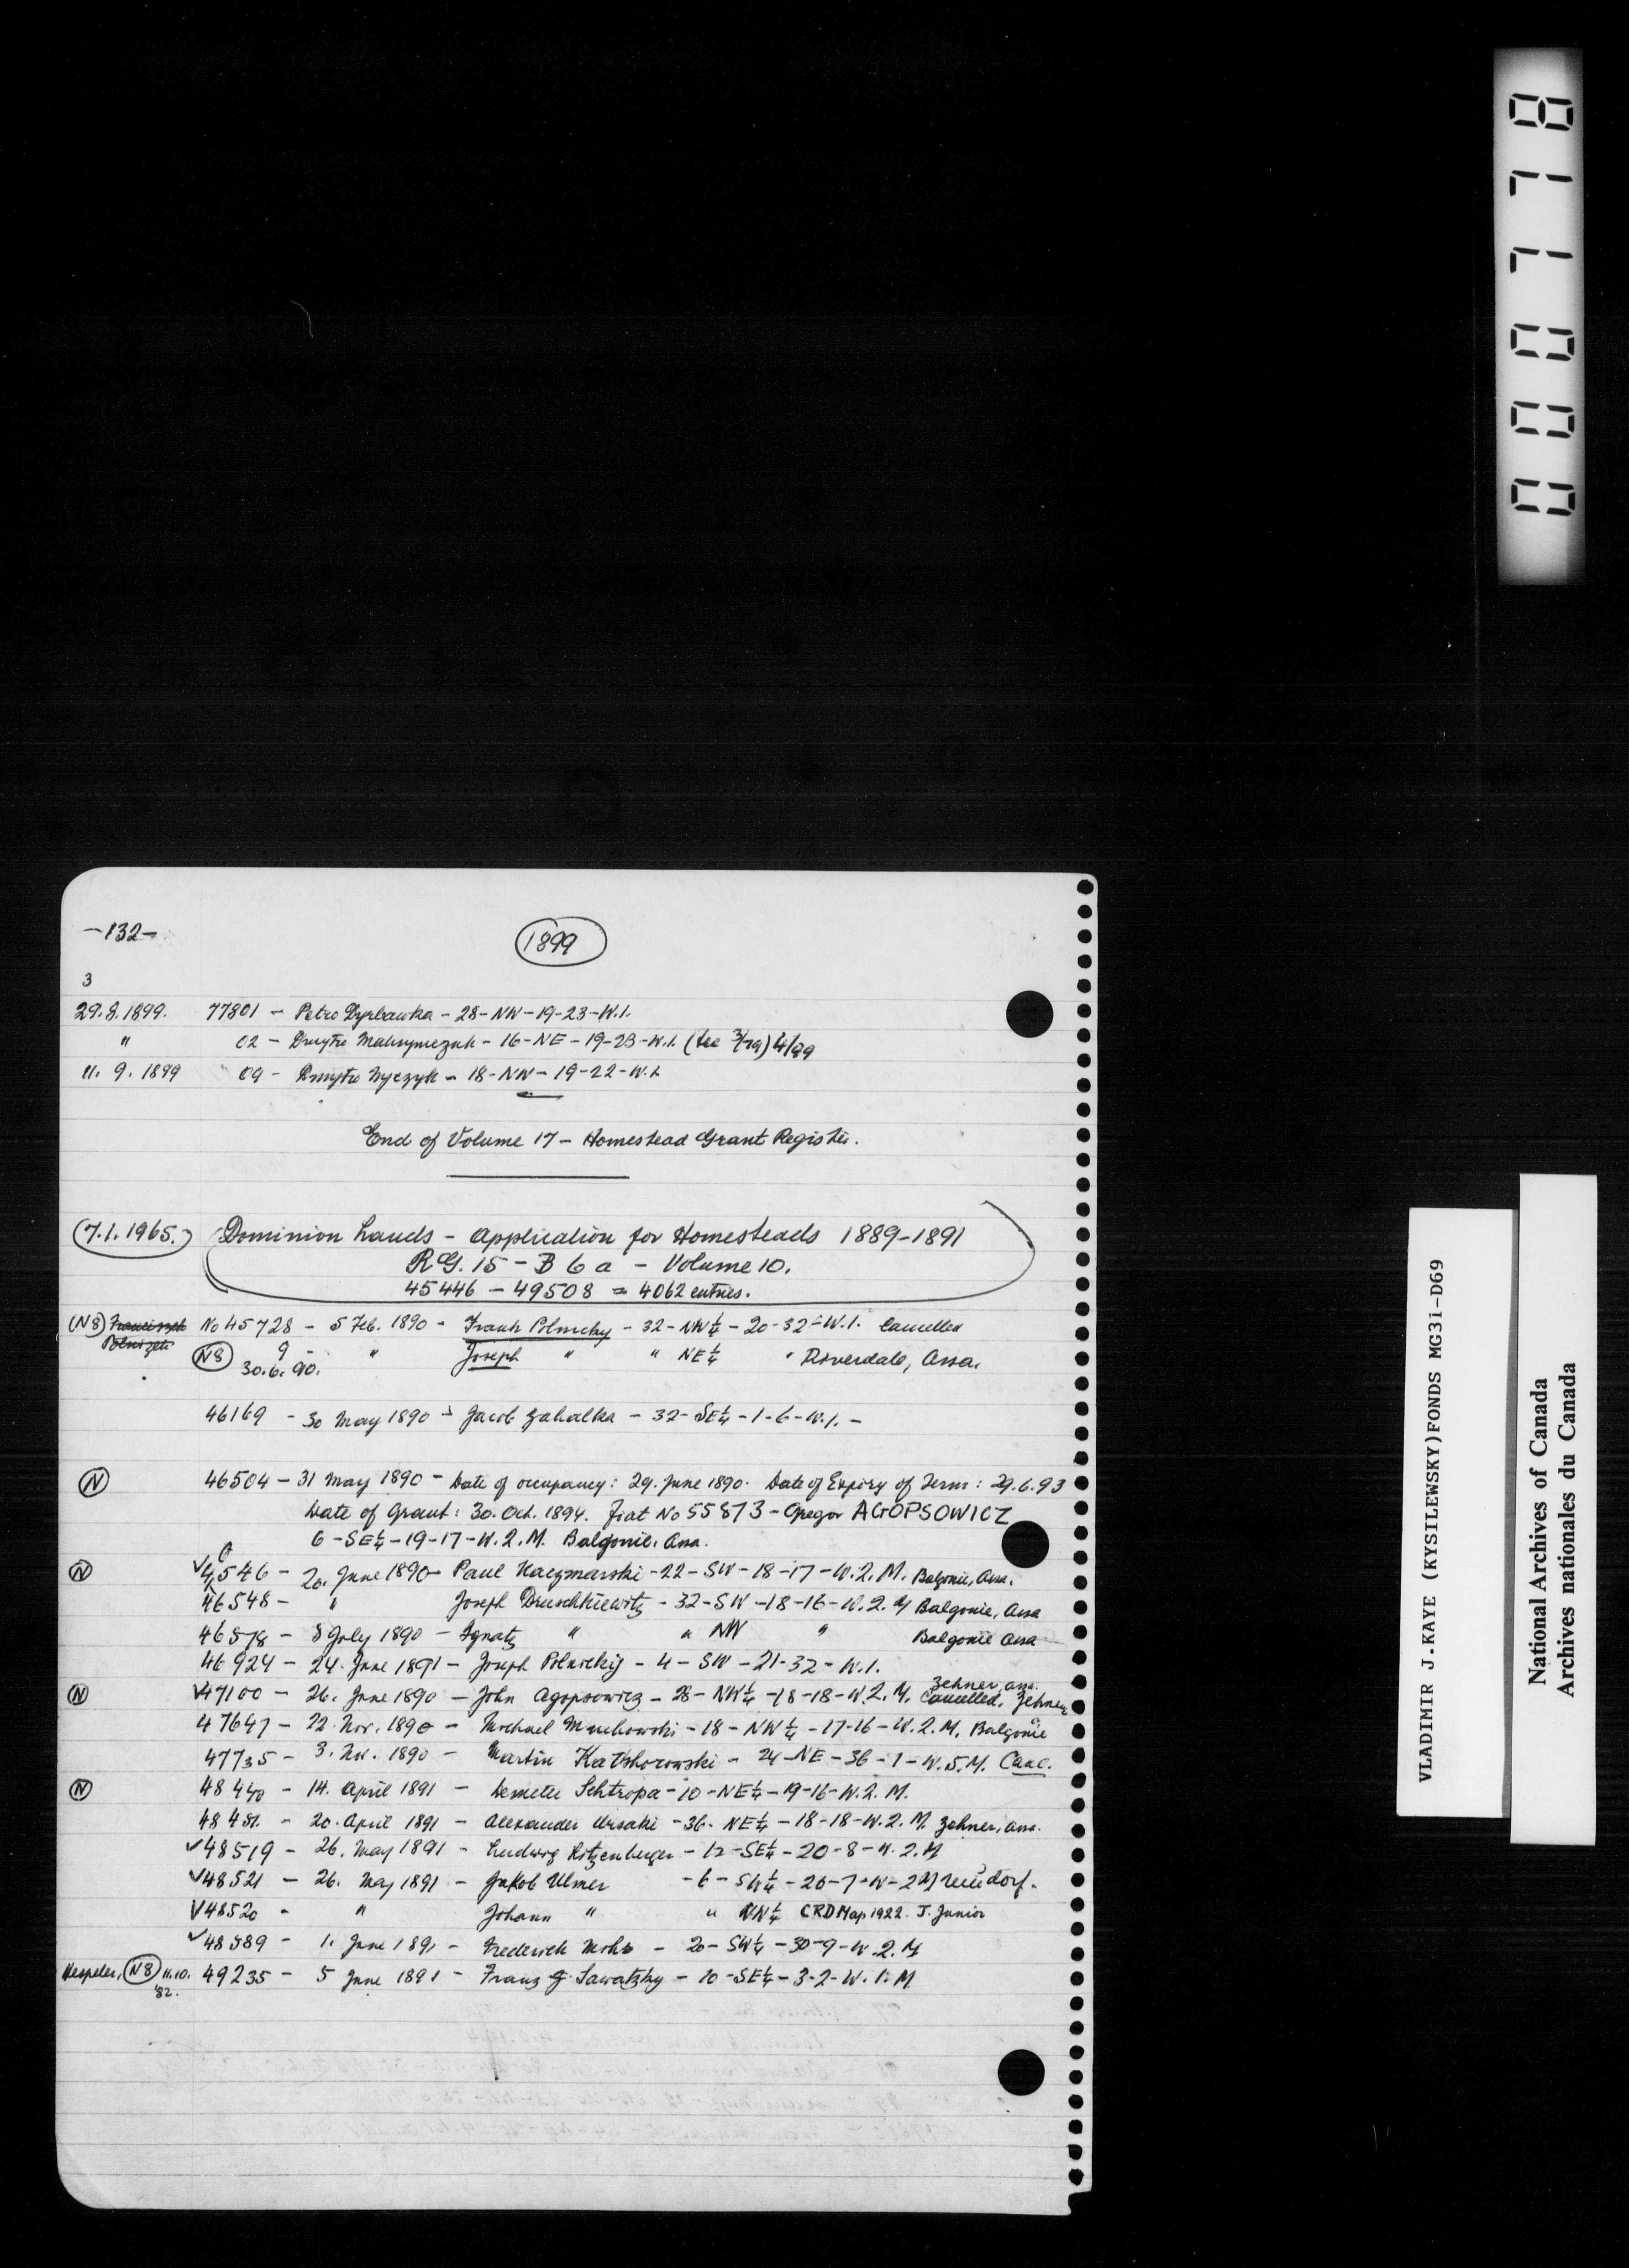 000778
-132-
1899
3
29.8.1899. 77801 - Petro Dyrbawka - 28-NW-19-23-W.1.
" 02 - Dmytro Maksymczuk - 16-NE-19-23-W.1. (see 3/99) 4/99
11. 9. 1899 09 - Dmytro Zyczyk - 18-NW-19-22-W.1.
End of Volume 17 - Homestead Grant Register.
(7.1.1965.) Dominion Lands - Application for Homesteads 1889-1891
RG. 15 - B 6 a - Volume 10.
45446 - 49508 = 4062 entries.
(N8) No 45728 - 5 Feb. 1890 - Frank Polnicky - 32-NW¼-20-32-W.1. Cancelled
(N8) 9 - " Joseph " " NE¼ " Riverdale, Assa.
30.6.90.
46169 - 30 May 1890 - Jacob Zahalka - 32-SE¼-1-6-W.1. -
(N) 46504 - 31 May 1890 - Date of occupancy: 29. June 1890. Date of Expiry of Term: 29.6.93
Date of Grant: 30. Oct. 1894. Fiat No 55873 - Gregor AGOPSOWICZ
6-SE¼-19-17-W.2.M. Balgonie, Assa.
(N) ✓46546 - 20. June 1890 - Paul Kaczmarski - 22-SW-18-17-W.2.M. Balgonie, Assa.
46548 - " Joseph Druschkiewitz - 32-SW-18-16-W.2.M Balgonie, Assa
46578 - 8 July 1890 - Ignatz " " NW " Balgonie Assa
46924 - 24. June 1891 - Joseph Polnickij - 4-SW-21-32-W.1.
(N) ✓47100 - 26. June 1890 - John Agopsowicz - 28-NW¼-18-18-W.2.M. Zehner, Ass. Cancelled. Zehner
47647 - 22. Nov. 1890 - Michael Muchowski - 18-NW¼-17-16-W.2.M. Balgonie
47735 - 3. Nov. 1890 - Martin Katshorowski - 24-NE-36-1-W.5.M. Canc.
(N) 48440 - 14. April 1891 - Demeter Schtropa - 10-NE¼-19-16-W.2.M.
48451. - 20. April 1891 - Alexander Ursaki - 36-NE¼-18-18-W.2.M. Zehner, Ass.
✓48519 - 26. May 1891 - Ludwig Ritzenberger - 12-SE¼-20-8-W.2.M
✓48521 - 26. May 1891 - Jakob Ulmer - 6-SW¼-20-7-W-2M Neudorf.
✓48520 - " Johann " " NW¼ CRD Map 1922. J. Junior
✓48589 - 1. June 1891 - Frederick Mohr - 20-SW¼-30-9-W.2.M
Hespeler, (N8) 11.10.'82. 49235 - 5 June 1891 - Franz J. Sawatzky - 10-SE¼-3-2-W.1.M
VLADIMIR J.KAYE (KYSILEWSKY)FONDS MG31-D69
National Archives of Canada
Archives nationales du Canada